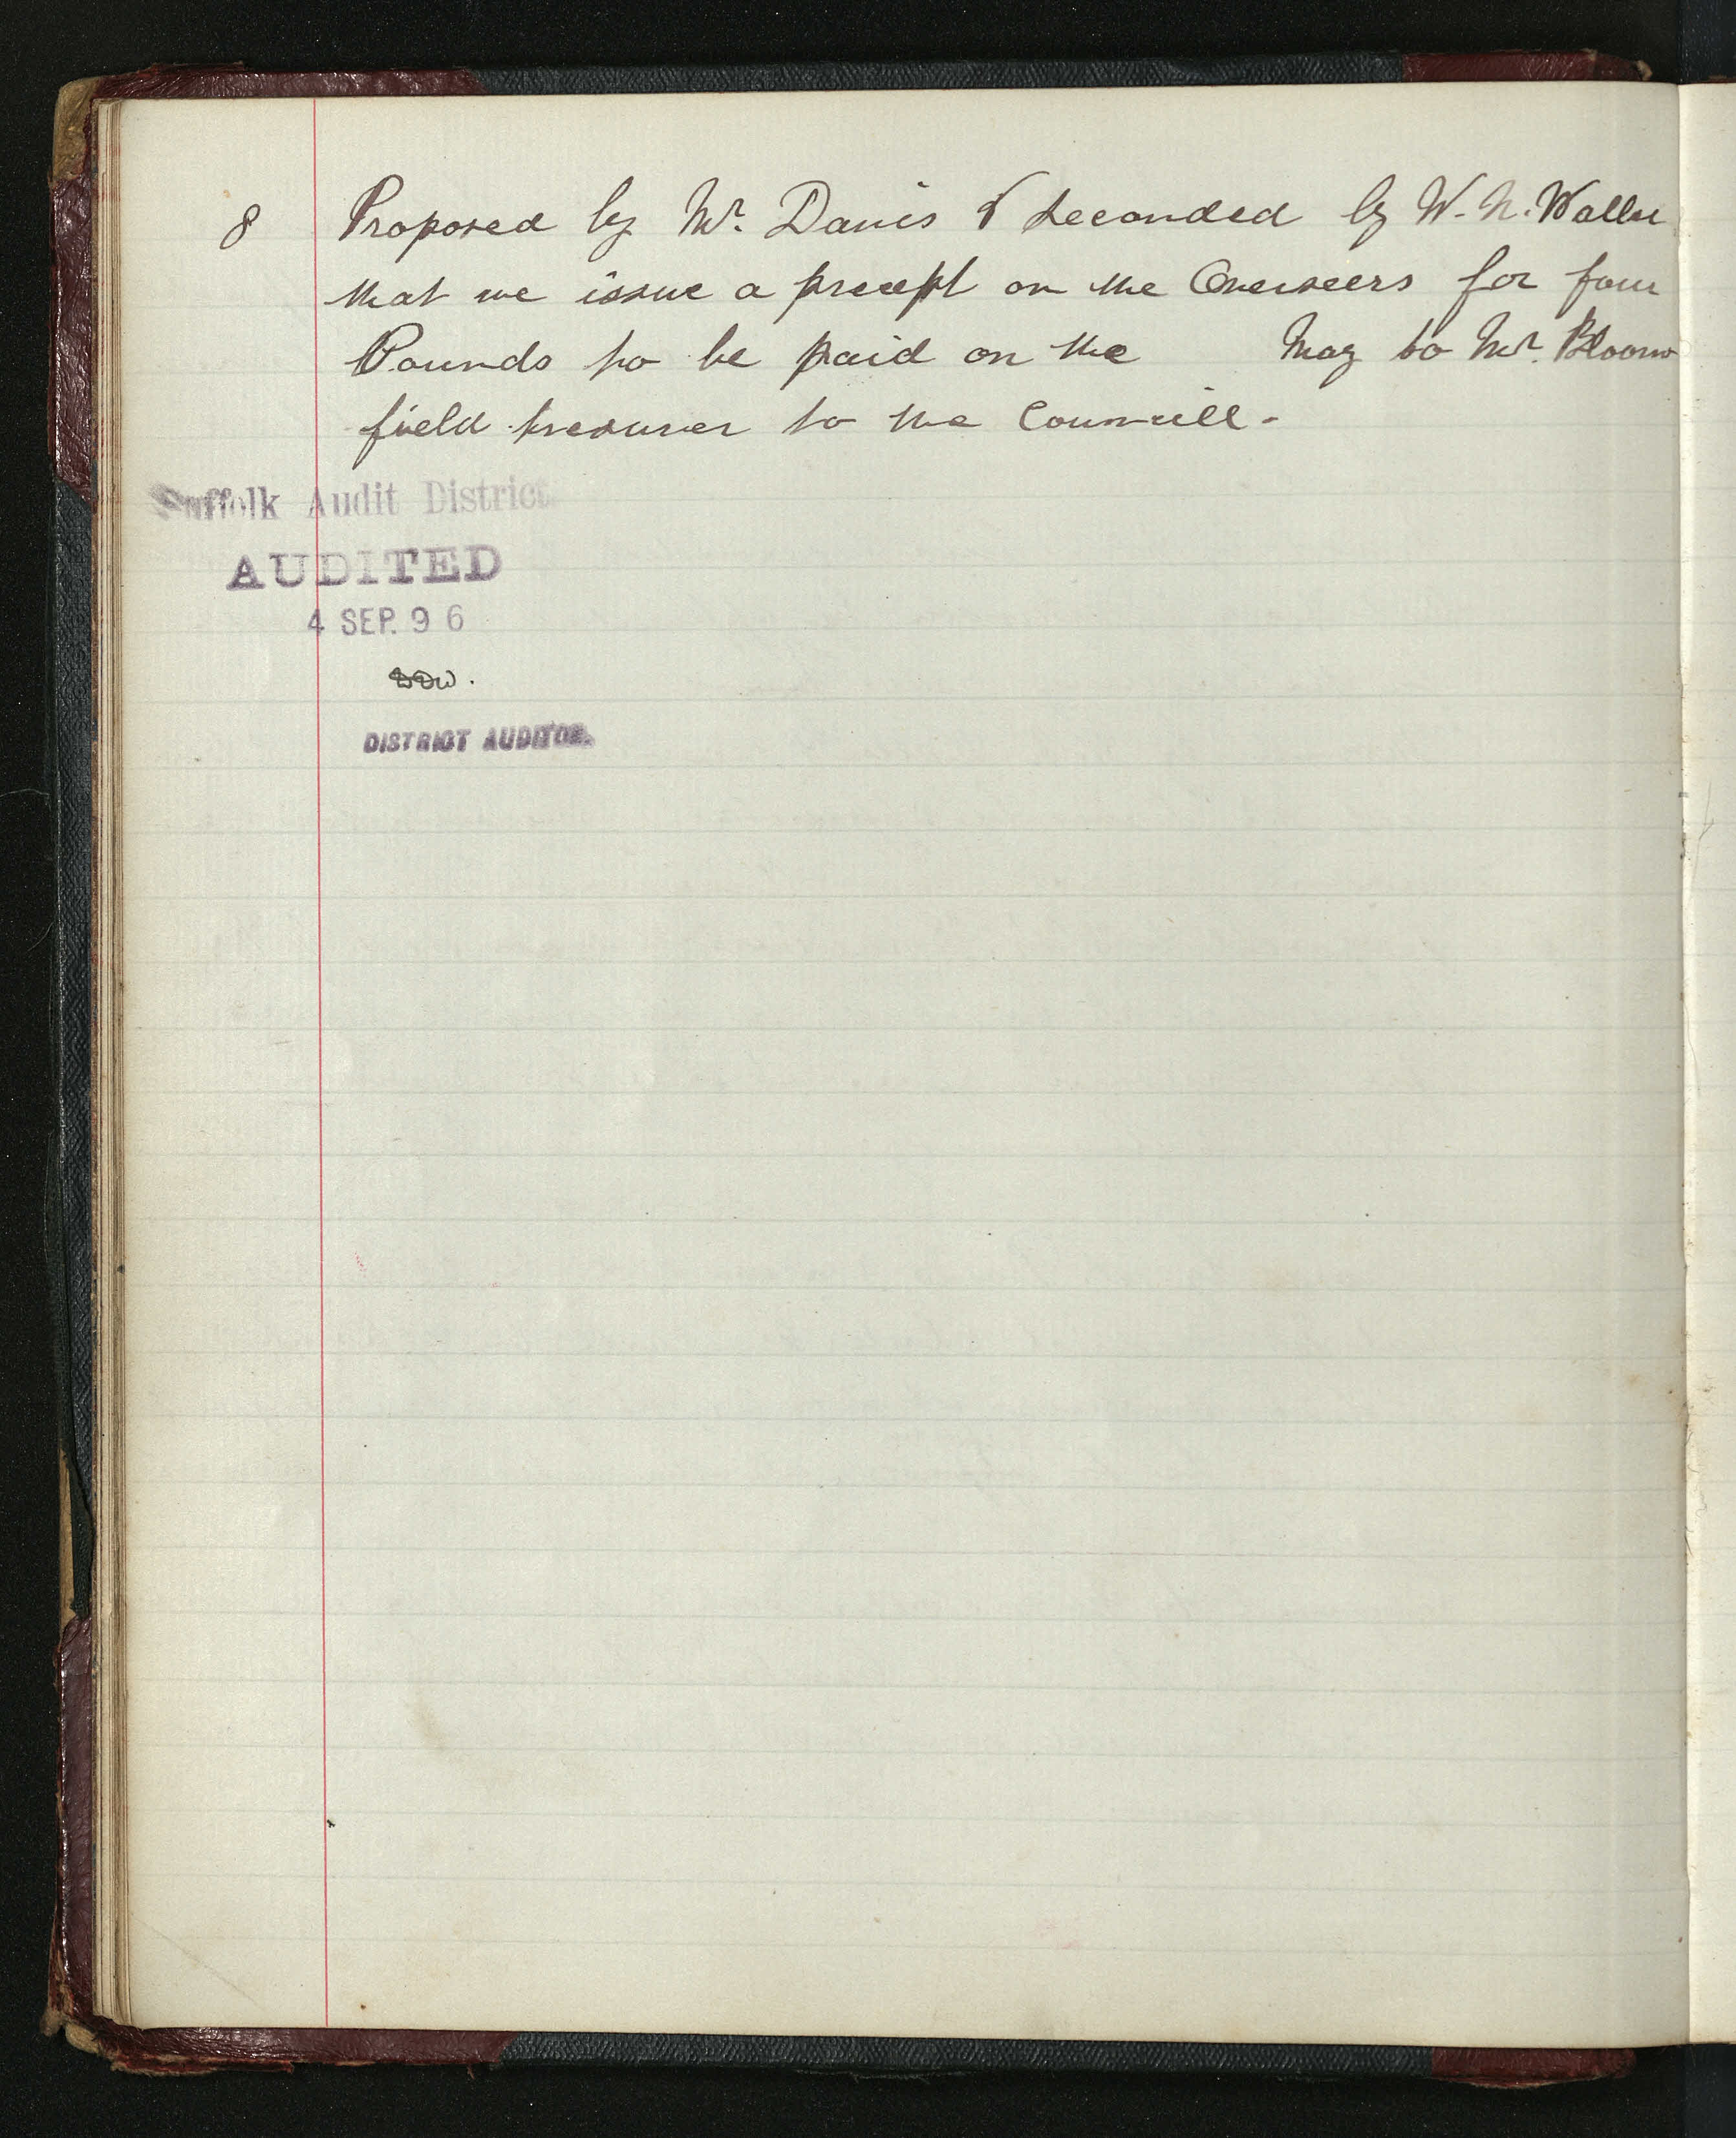 8 Proposed by Mr. Davis & Seconded by W. N. Waller
that we issue a precept on the Overseers for four
Pounds to be paid on the May to Mr. Bloom
field tresurer to the Councill -
Suffolk Audit District
AUDITED
4 SEP. 96
DISTRICT AUDITOR.